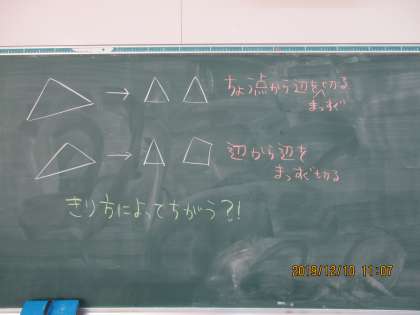 ちょう点から辺を切る
まっすぐ
辺から辺を
まっすぐ切る
きり方によってちがう?!
2019/12/10 11:07